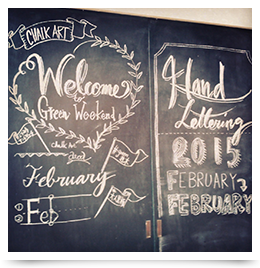 CHALK ART
Welcome
to
Green Weekend
Chalk Art
February
Feb
Hand
Lettering
2015
FEBRUARY
FEBRUARY